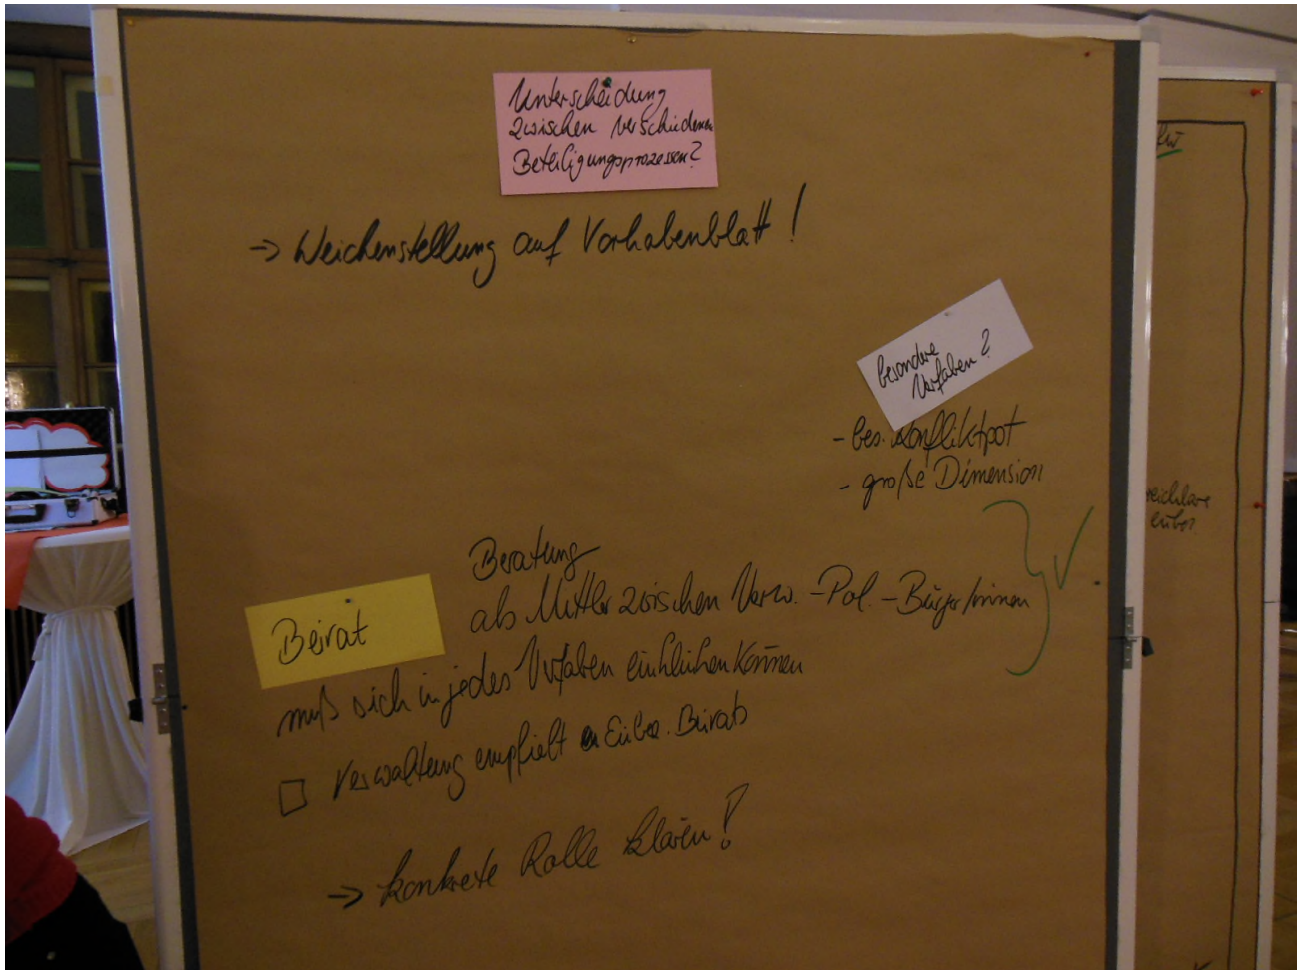 Unterscheidung
zwischen verschiedenen
Beteiligungsprozessen?
-> Weichenstellung auf Vorhabenblatt!
besondere
Verfahren?
- bes. Konfliktpot
- große Dimension
Beratung
als Mittler zwischen Verw. - Pol. - Bürger/innen
Beirat
muß sich in jedes Verfahren einklinken können
□ Verwaltung empfielt Einbez. Beirats
-> konkrete Rolle klären!